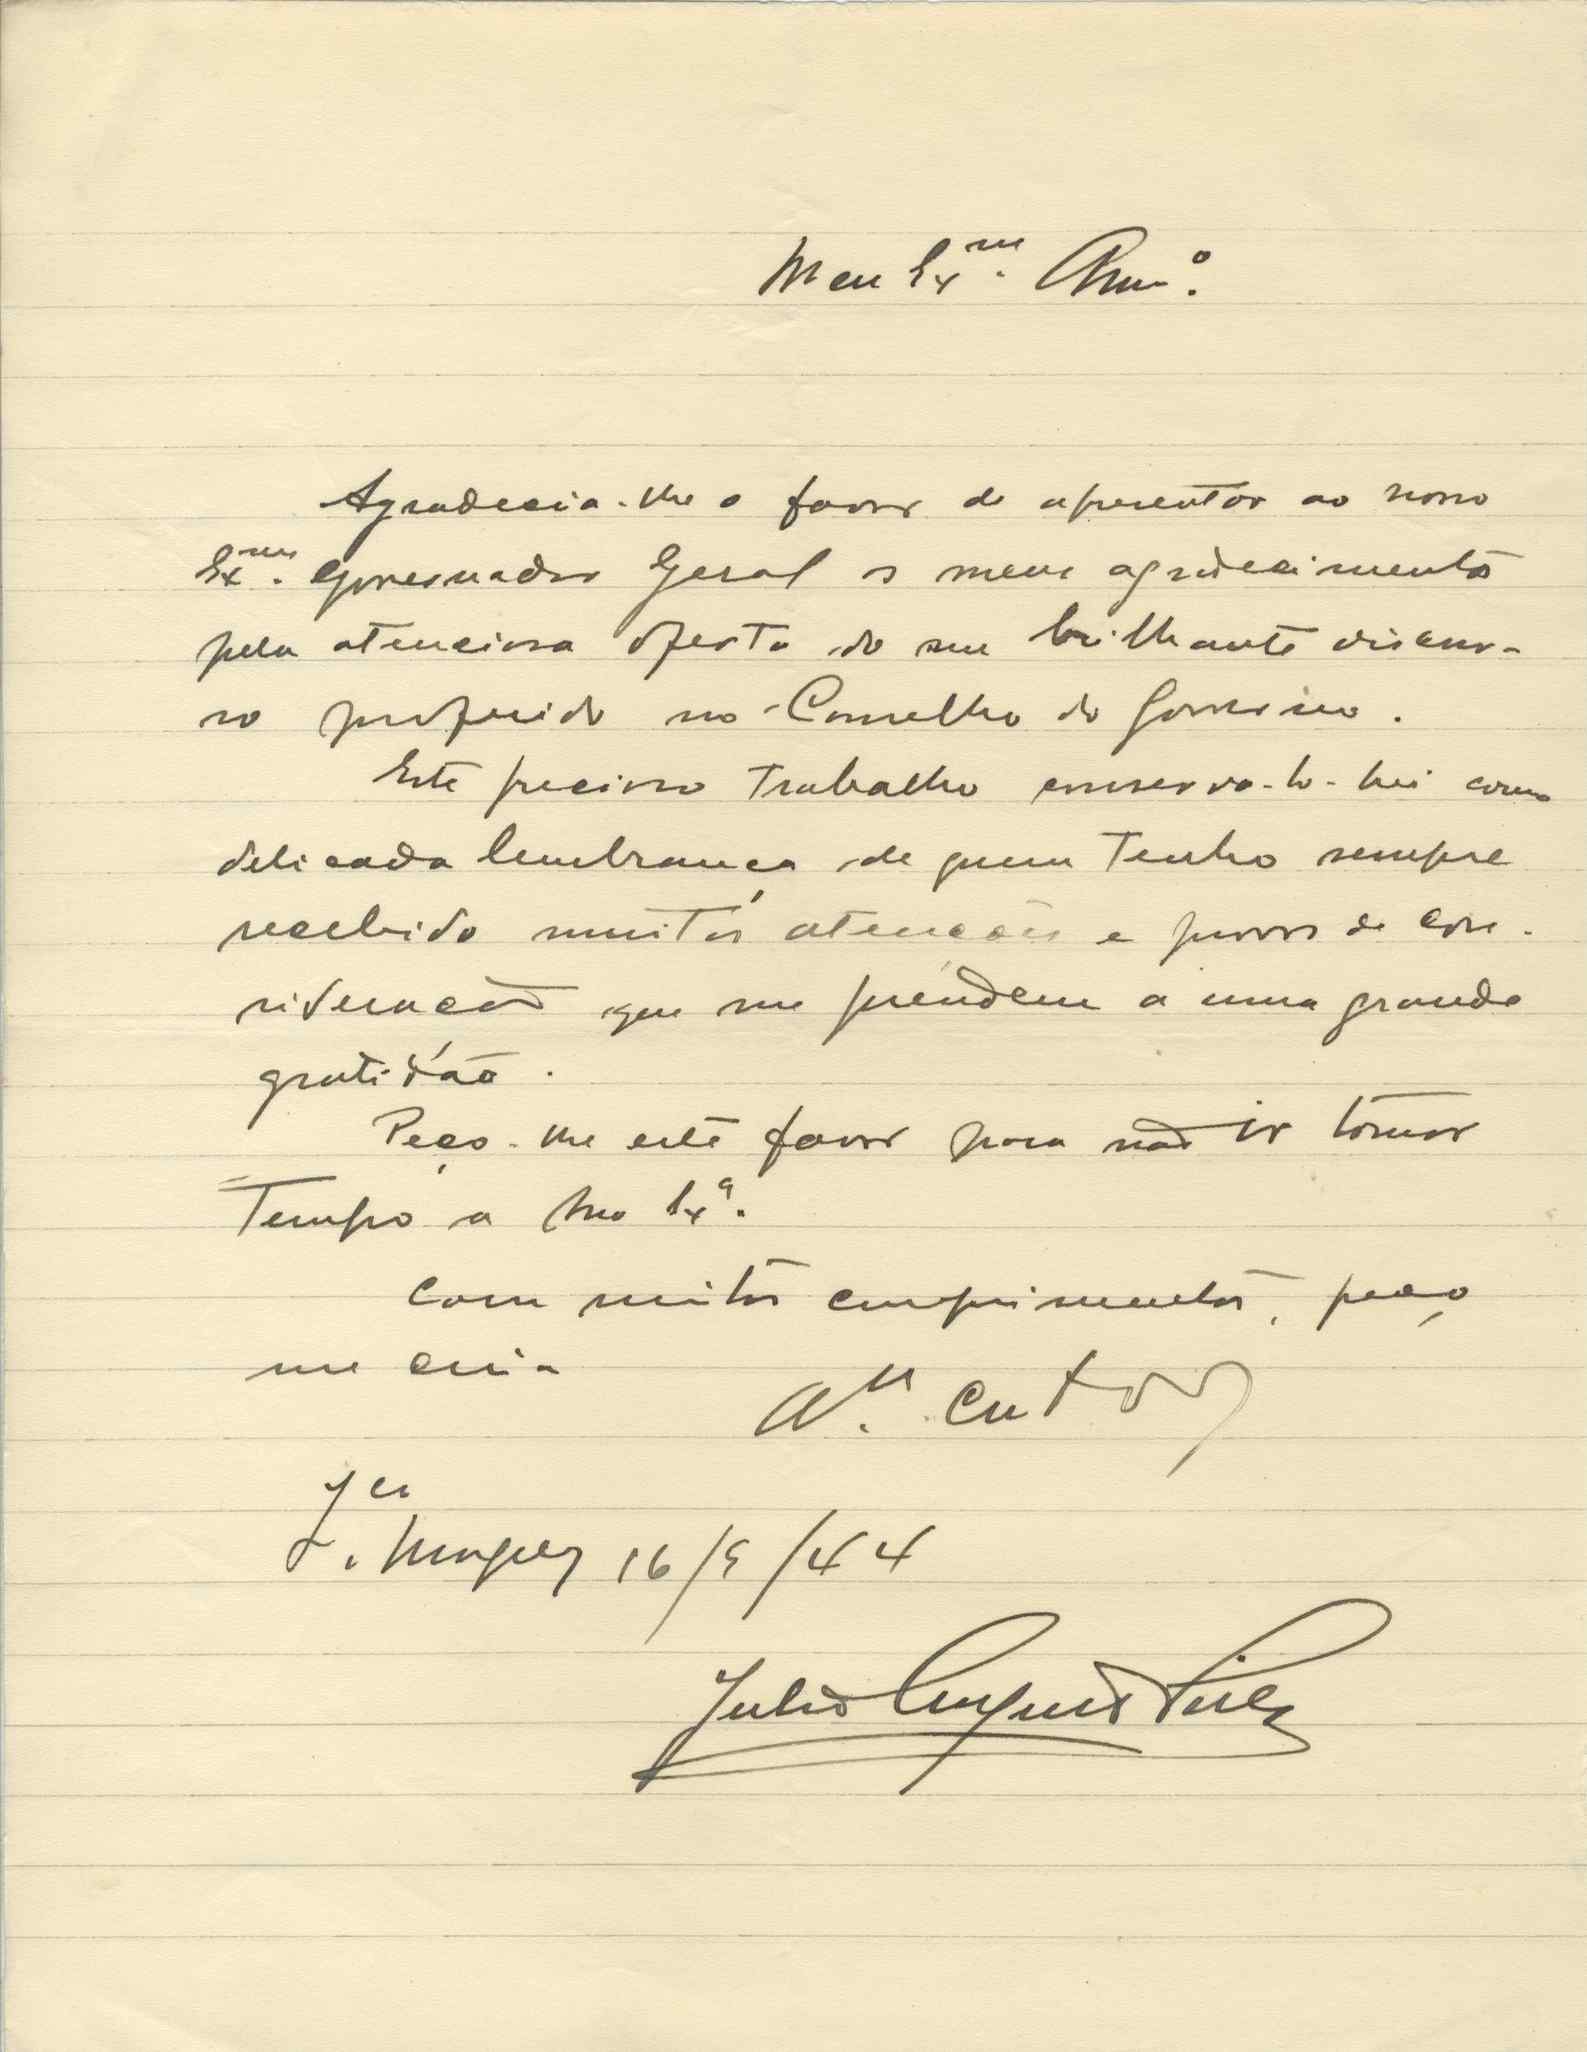 Meu Ex.mo Am.º
Agradecia-lhe o favor de apresentar ao nosso
Ex.mo Governador Geral os meus agradecimentos
pela atenciosa oferta do seu brilhante discur-
so proferido no Conselho do Governo.
Este precioso trabalho conserva-lo-hei como
delicada lembrança de quem tenho sempre
recebido muitas atenções e provas de con-
sideração que me prendem a uma grande
gratidão.
Peço-lhe este favor para não ir tomar
tempo a Sua Ex.ª.
Com muitos cumprimentos, peço
me creia
L. Marques 16/9/44
Julio Augusto Pires